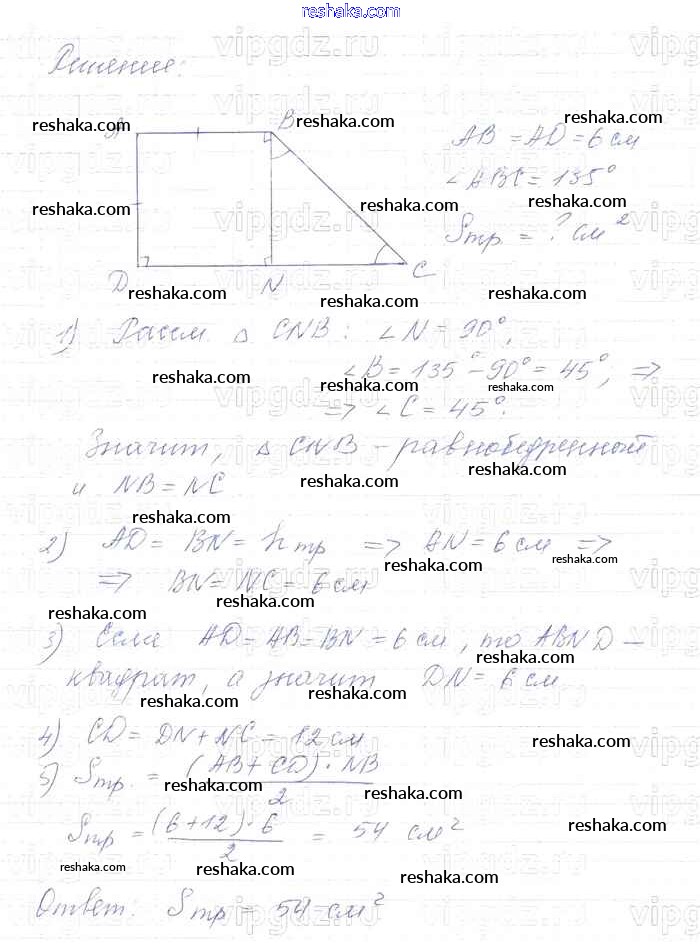 reshaka.com
Решение:
A B
AB = AD = 6 см
∠ABC = 135°
Sтр. = ? см²
D N C
1) Рассм △ CNB: ∠N = 90°,
∠B = 135° - 90° = 45°, =>
=> ∠C = 45°.
Значит, △ CNB - равнобедренный
и NB = NC
2) AD = BN = hтр => AN = 6 см =>
=> BN = NC = 6 см
3) Если AD = AB = BN = 6 см, то ABND -
квадрат, а значит DN = 6 см
4) CD = DN + NC = 12 см
5) Sтр. = (AB + CD) · NB / 2
Sтр = (6 + 12) · 6 / 2 = 54 см²
Ответ: Sтр = 54 см²